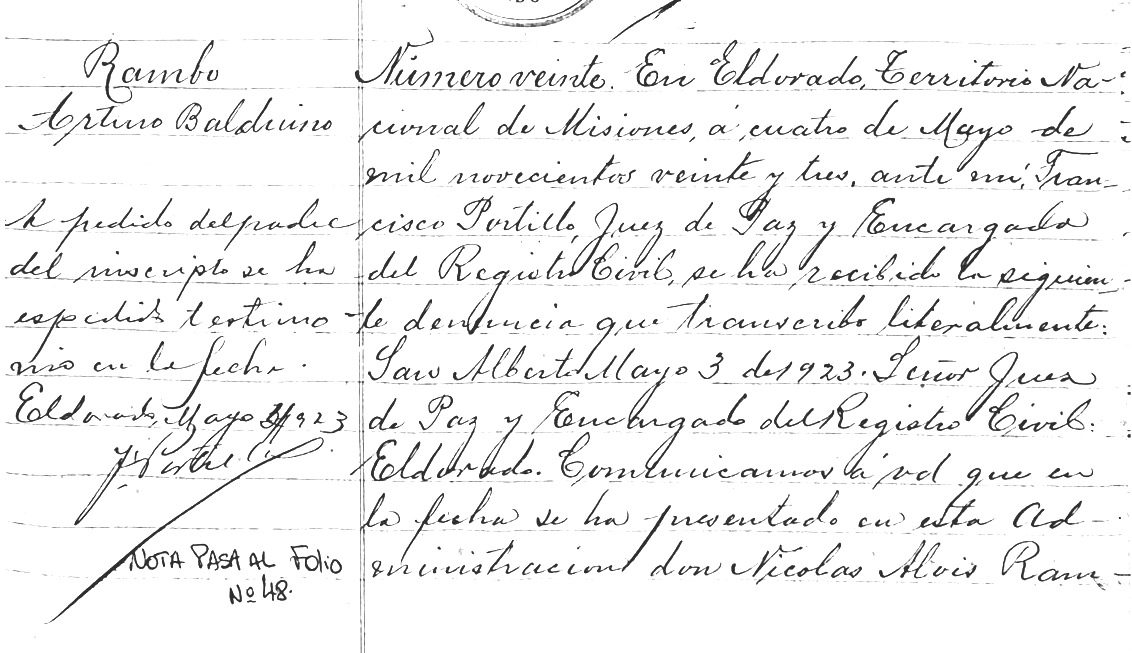 Rambo
Arturo Balduino
A pedido del padre
del inscripto se ha
espedido testimo-
nio en la fecha.
Eldorado, Mayo 1923
NOTA PASA AL FOLIO
Nº 48.
Número veinte. En Eldorado, Territorio Na-
cional de Misiones, á cuatro de Mayo de
mil novecientos veinte y tres, ante mí, Fran-
cisco Portillo, Juez de Paz y Encargado
del Registro Civil, se ha recibido la siguien-
te denuncia que transcribo literalmente:
San Alberto Mayo 3 de 1923. Señor Juez
de Paz y Encargado del Registro Civil.
Eldorado. Comunicamos á vd que en
la fecha se ha presentado en esta Ad-
ministracion don Nicolas Alois Ram-